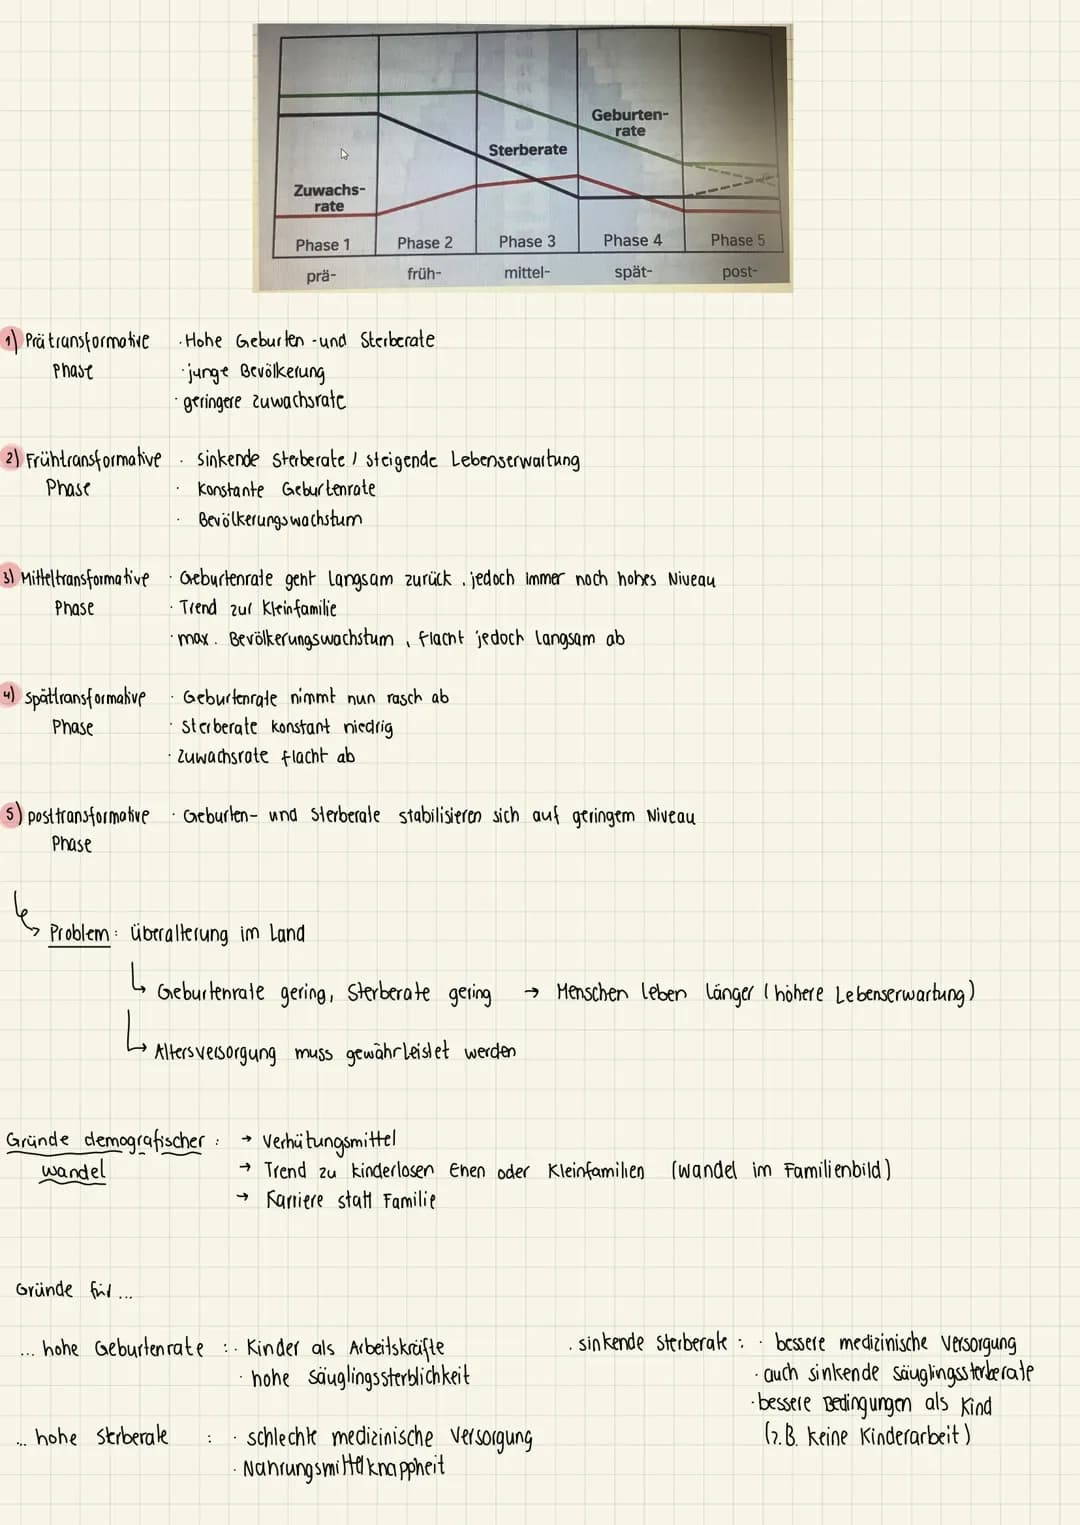 Geburten-
rate
Sterberate
Zuwachs-
rate
Phase 1 Phase 2 Phase 3 Phase 4 Phase 5
prä- früh- mittel- spät- post-
1) Prätransformative · Hohe Geburten -und Sterberate
Phase · junge Bevölkerung
· geringere Zuwachsrate
2) Frühtransformative · sinkende Sterberate / steigende Lebenserwartung
Phase · Konstante Geburtenrate
· Bevölkerungswachstum
3) Mitteltransformative · Geburtenrate geht langsam zurück, jedoch immer noch hohes Niveau
Phase · Trend zur Kleinfamilie
· max. Bevölkerungswachstum, flacht jedoch langsam ab
4) spättransformative · Geburtenrate nimmt nun rasch ab
Phase · Sterberate konstant niedrig
· Zuwachsrate flacht ab
5) posttransformative · Geburten- und Sterberate stabilisieren sich auf geringem Niveau
Phase
Problem: überalterung im Land
Geburtenrate gering, Sterberate gering → Menschen leben länger (höhere Lebenserwartung)
Altersversorgung muss gewährleistet werden
Gründe demografischer : → Verhütungsmittel
wandel → Trend zu kinderlosen Ehen oder Kleinfamilien (wandel im Familienbild)
→ Karriere statt Familie
Gründe für ...
... hohe Geburtenrate : · Kinder als Arbeitskräfte
· hohe Säuglingssterblichkeit
... hohe Sterberate : · schlechte medizinische Versorgung
· Nahrungsmittelknappheit
. sinkende Sterberate : · bessere medizinische Versorgung
· auch sinkende Säuglingssterberate
· bessere Bedingungen als Kind
(z.B. keine Kinderarbeit)